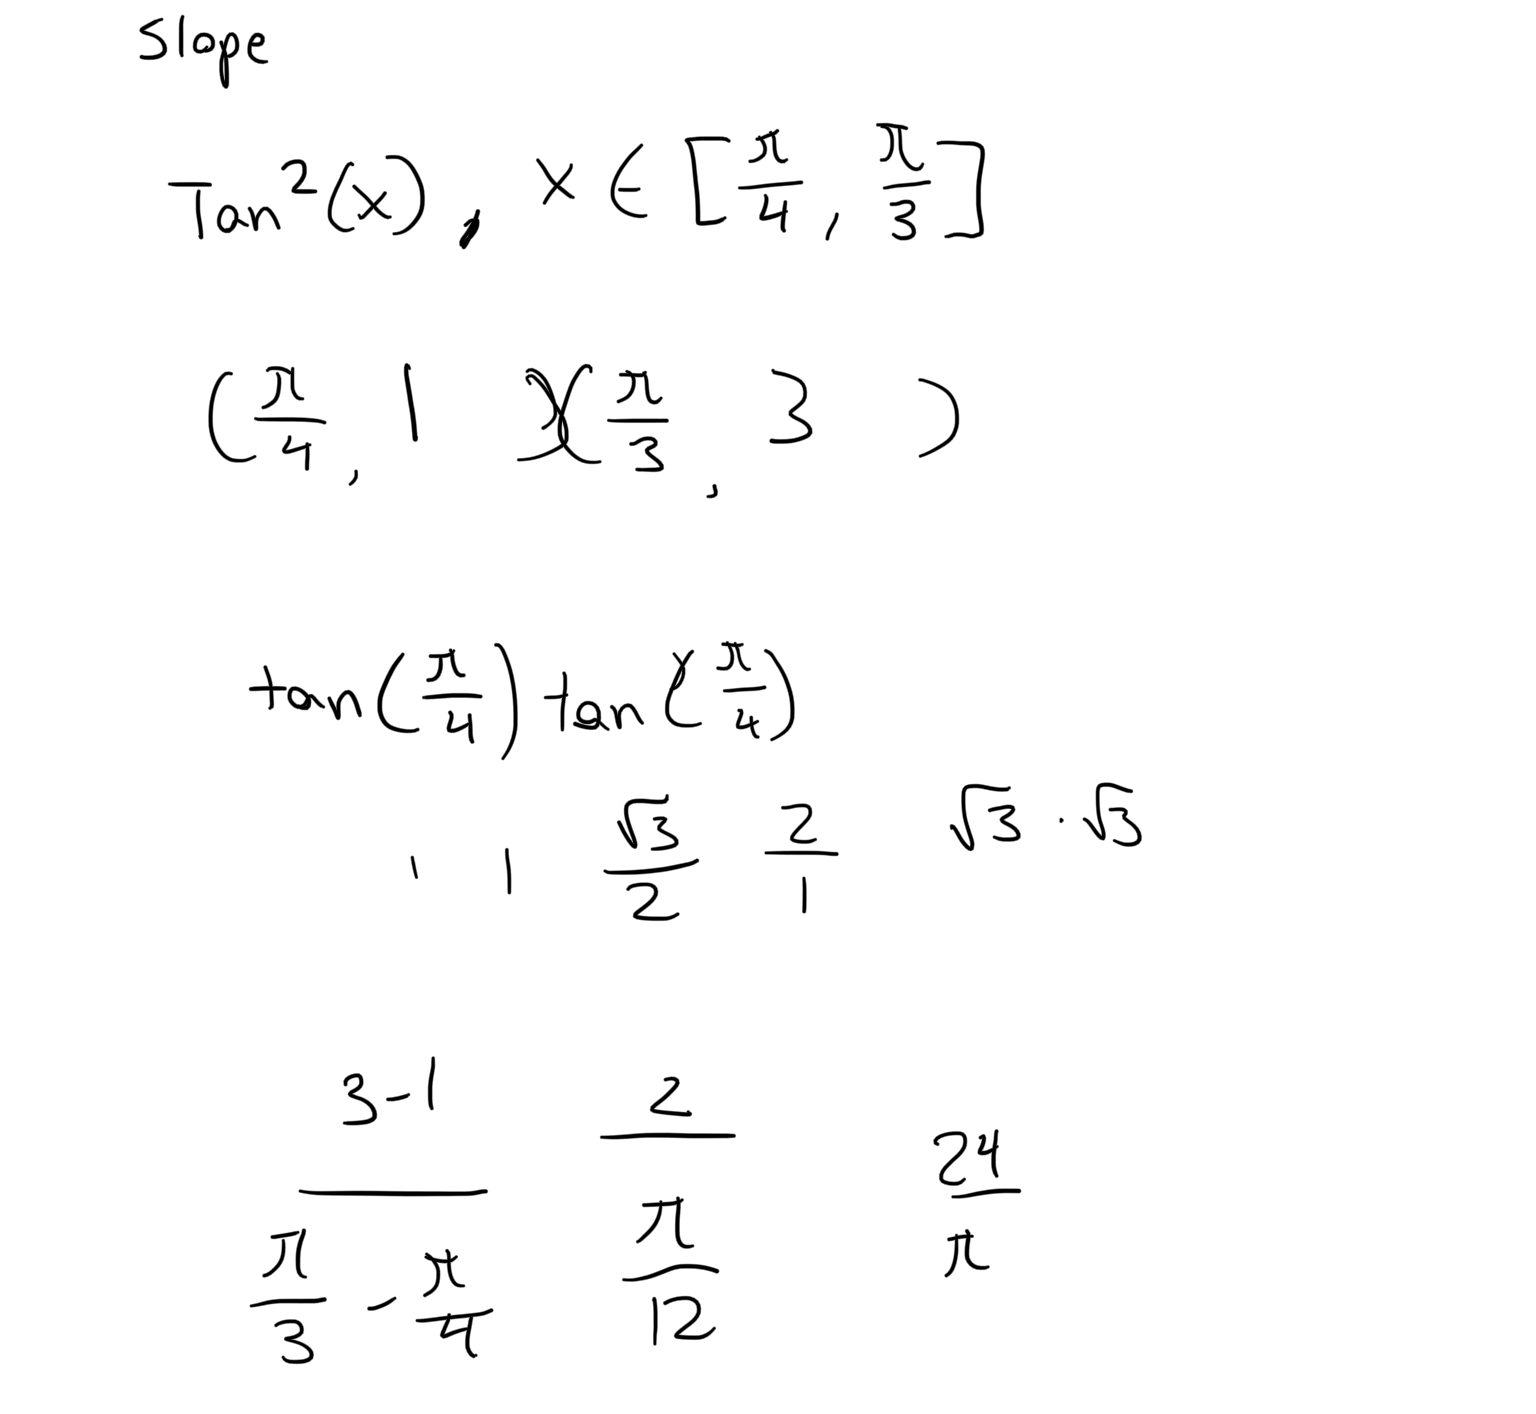 Slope
Tan²(x), x ∈ [π/4, π/3]
(π/4, 1 )(π/3, 3 )
tan(π/4) tan(π/4)
1 1 √3/2 2/1 √3 · √3
(3-1)/(π/3 - π/4) 2/(π/12) 24/π